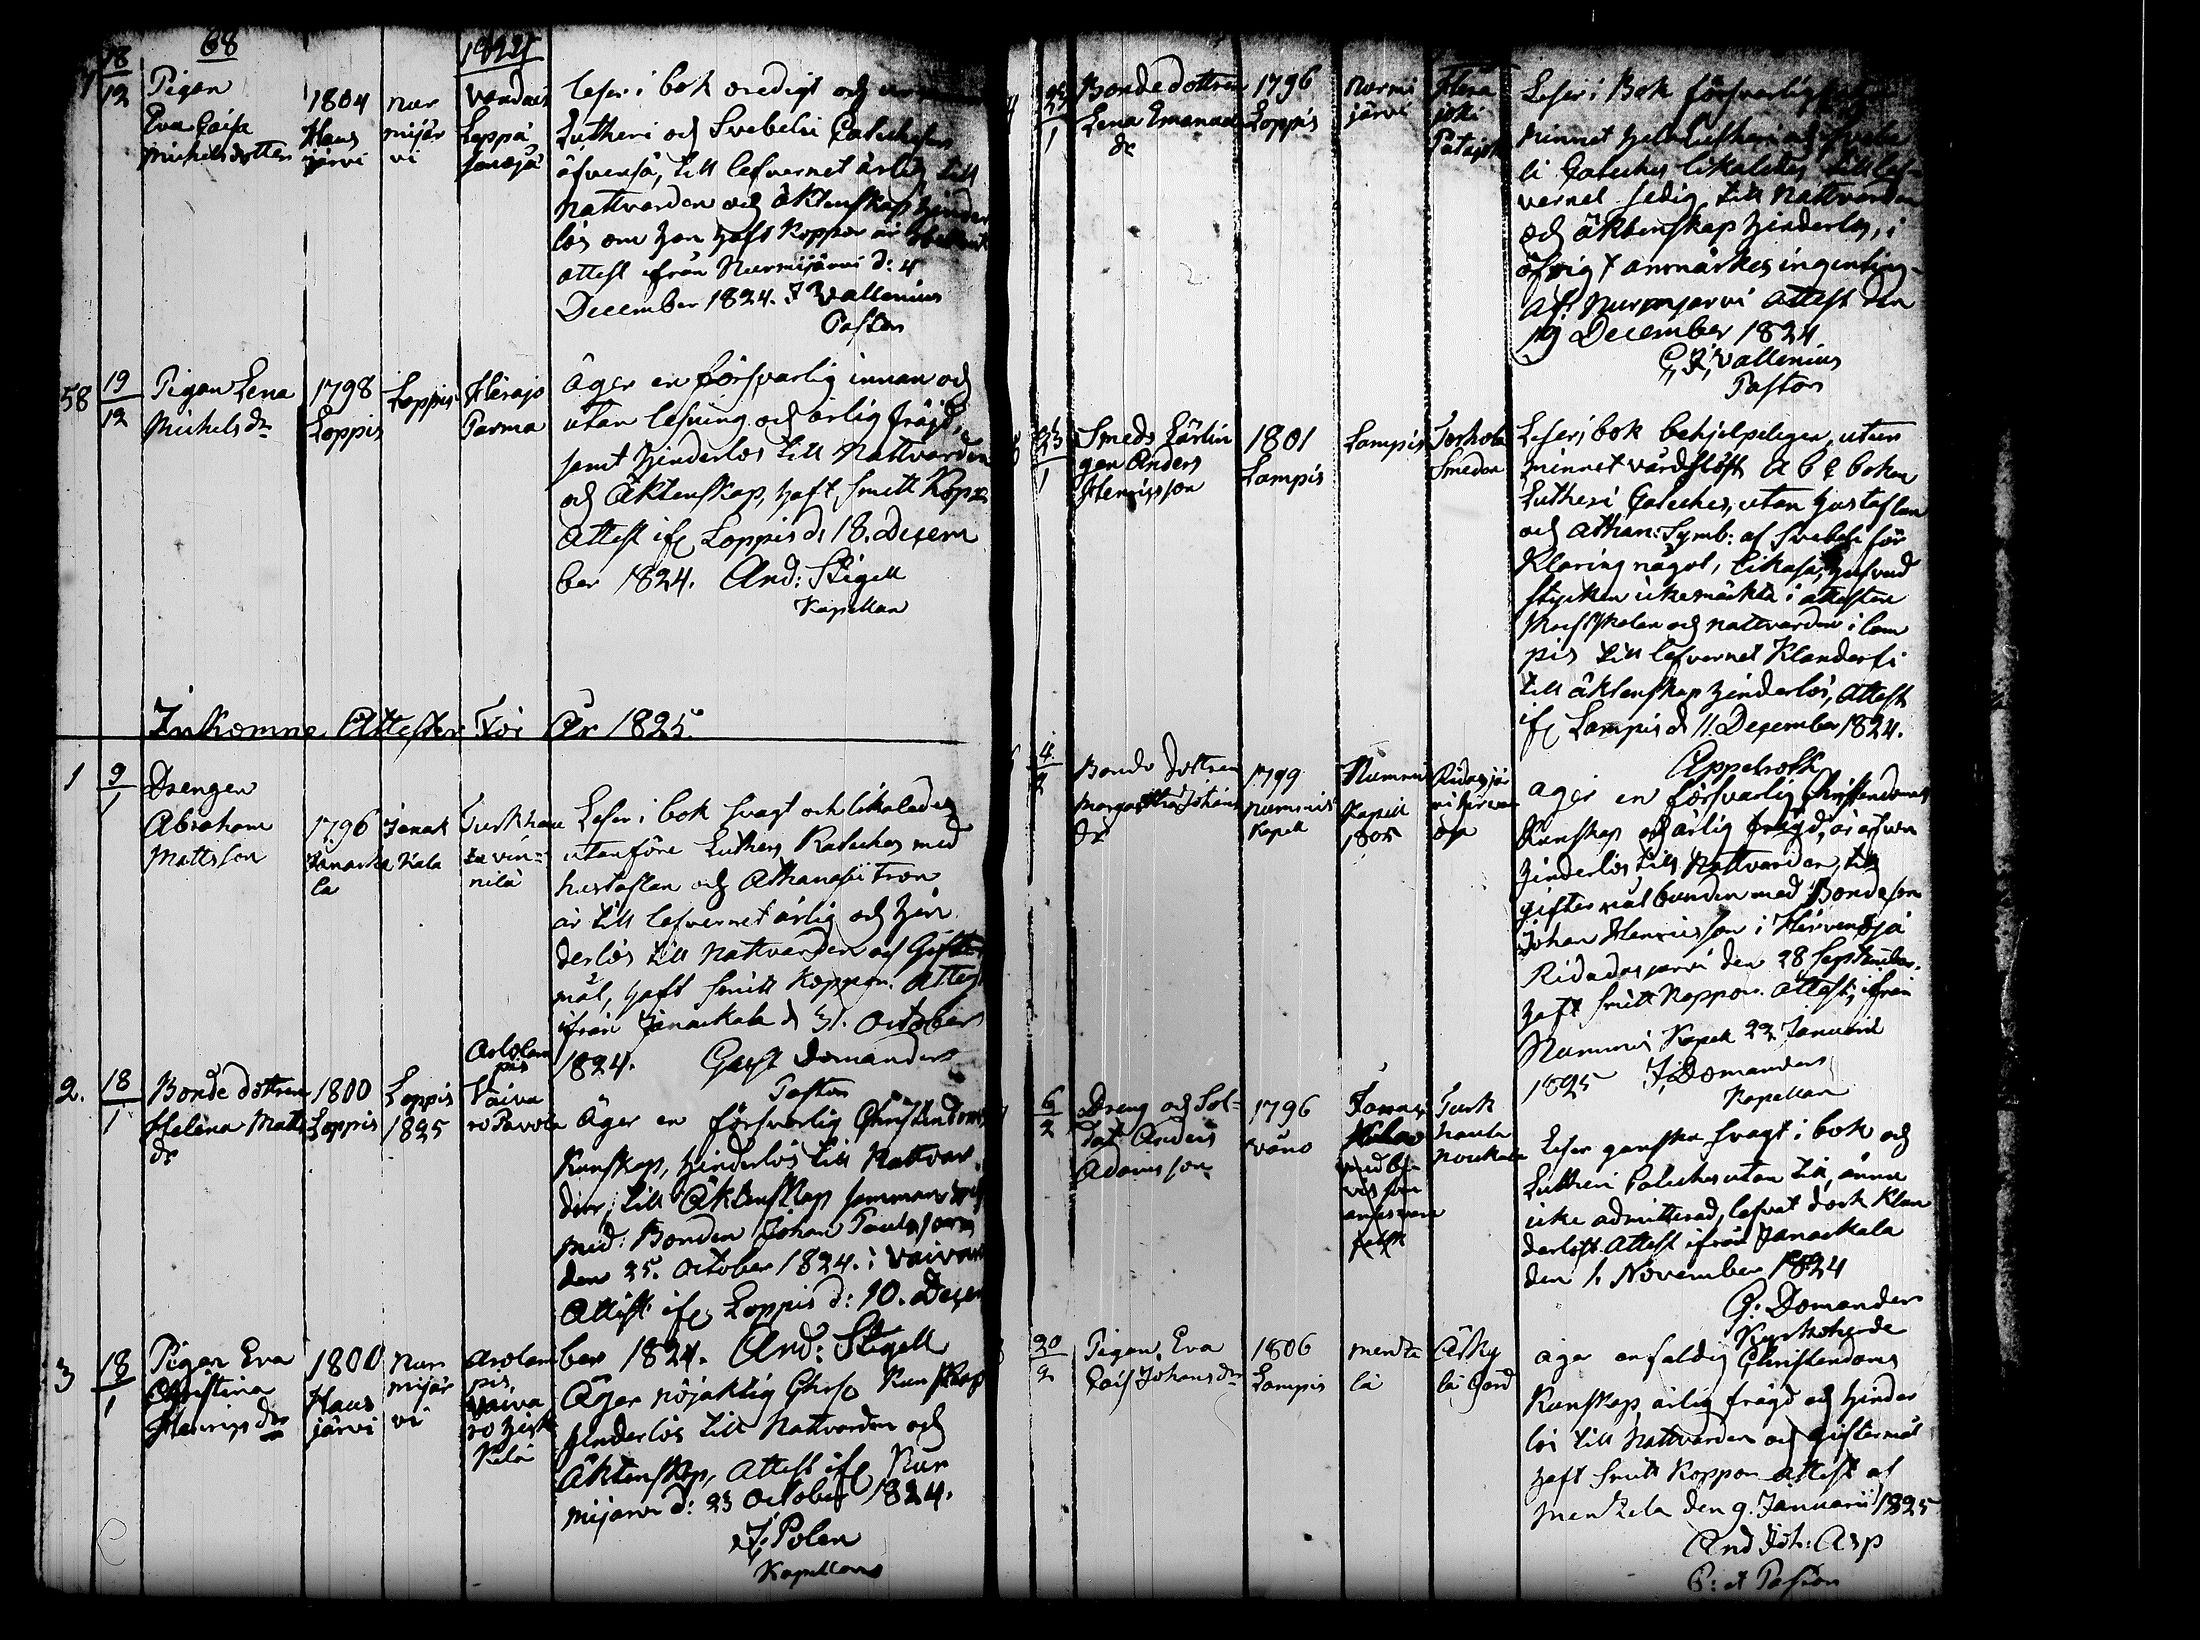 68
1824
18
12
Pigan
Eva Caisa
Michelsdotter
1804
Haus
järvi
Nur
mijär
vi
Vandais
Loppå
läser i bok oredigt och
Lutheri och Svebelii Cateches
äfvenså, till lefvernet ärlig, till
Nattvarden och äktenskap hinder
lös om hon haft Koppor är
attest ifrån Nurmijärvi d: 4
December 1824. Wallenius
Pastor
58
19
12
Pigan Lena
Michels dr
1798
Loppis
Loppis
Hirajo
Parma
äger en försvarlig innan och
utan läsning och ärlig frägd,
samt hinderlös till Nattvarden
och Äktenskap, haft smitt Kopp
Attest ifr Loppis d: 18. Decem
ber 1824. And: Stigell
Kapellan
Inkomne Attester För År 1825.
1
9
1
Drengen
Abraham
Mattsson
1796
Janacka
la
Janak
kala
Turkhau
ta vin=
nilä
Leser i bok svagt och likaledes
utanföre Luthers Kateches med
hustaflan och Athanasii Tron
är till lefvernet ärlig och hin
derlös till Nattvarden och Gifter
mål, haft smitt Koppor. Attest
ifrån Janackala d 31. October
1824. Gust Domander
Pastor
2.
18
1
Bonde dottren
Helena Matts
dr
1800
Loppis
Loppis
1825
Arolam
pis
Vaiva
ro Pavola
Äger en försvarlig Christendoms
Kunskap, hinderlös till Nattvar
den, till Äktenskap sammans
med: Bonden Johan Paulsson
den 25. October 1824. i Vaivaro
Attest. ifr Loppis d: 10. Decem
ber 1824. And: Stigell
3
18
1
Pigan Eva
Christina
Henrics dr
1800
Haus
järvi
Nur
mijär
vi
Arolam
pis,
Vaiva
ro
Kilä
Äger nöjaktig Chr Kunskap
hinderlös till Nattvarden och
Äktenskap, Attest ifr Nur
mijärvi d: 23 October 1824.
J. Polen
Kapellan
1
Bondedottren
Lena Emanuels
dr
1796
Loppis
Nurmi
järvi
Hera
joki
Leser i Bok försvarligt
minnet hela Lutheri och Svebe
li Cateches likaledes till lef-
vernet sedig, till Nattvarden
och äktenskap hinderlös, i
öfrigt anmärkes ingenting-
af Nurmijärvi Attest den
19 December 1824
C, J, Wallenius
Pastor
23
1
Smeds Lärlin
gen Anders
Henricsson
1801
Lampis
Lampis
Torhola
Smedon
Leser i bok behjelpeligen, utur
minnet vårdslöst A b c boken
Lutheri Cateches, utan hustaflan
och Athan: Symb: af Svebeli för
klaring något, likaså, hufvud
stycken ickemärkte i attesten
och nattvarden i Lam
pis till lefvernet Klanderfri
till äktenskap hinderlös, Attest
ifr Lampis d 11. December 1824.
Appelroth
4
2
Bonde dottren
Margaretha Johans
dr
1799
Nummis
Kapell
Nummi
Kapell
1825
Ridasjär
vi Hirven
oja
äger en försvarlig Christendoms
Kunskap och ärlig frägd, är äfven
hinderlös till Nattvarden, till
giftermål bunden med Bondeson
Johan Henricsson i Hirvenoja
Ridasjärvi den 28 September.
haft smitt Koppor. Attest, ifrån
Nummis Kapell 22 Januarii
1825 J, Domander
Kapellan
6
2
Dreng och Sol=
dat Anders
Adamsson
1796
Janac
kala
med be-
vis
Turk
hauta
Leser ganska svagt i bok och
Lutheri Cateches utan till, ännu
icke admitterad, lefvat dock Klan
derlöst. Attest ifrån Janackala
den 1. November 1824
G: Domander
Kyrkoherde
20
2
Pigan, Eva
Cais Johans dr
1806
Lampis
Mentza
lä
Äsky
lä Gård
äger enfaldig Christendoms
Kunskap, ärlig frägd och hinder
lös till Nattvarden och giftermål
haft smitt Koppor. Attest af
Mentzela den 9. Januarii 1825
And Joh: Asp
P: et Pastor